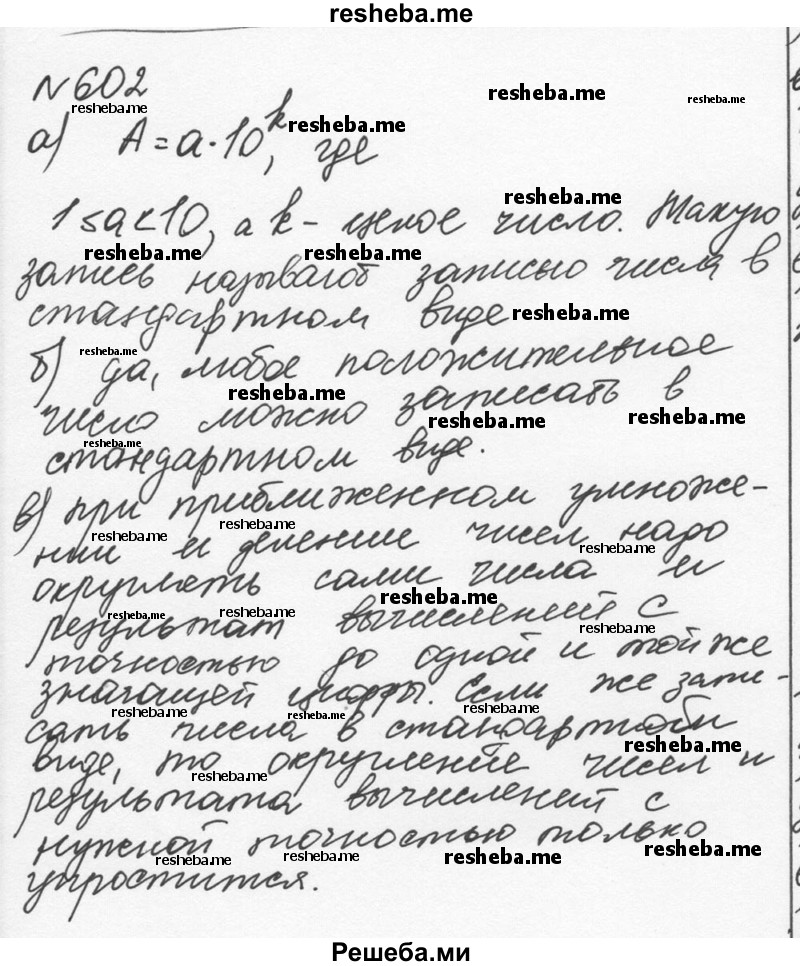 resheba.me
№602
а) A = a · 10^k, где
1 ≤ a < 10, а k – целое число. Такую
запись называют записью числа в
стандартном виде
б) да, любое положительное
число можно записать в
стандартном виде.
в) при приближенном умноже-
нии и делении чисел надо
округлять сами числа и
результат вычислений с
точностью до одной и той же
значащей цифры. Если же запи-
сать числа в стандартном
виде, то округление чисел и
результата вычислений с
нужной точностью только
упростится.
Решеба.ми